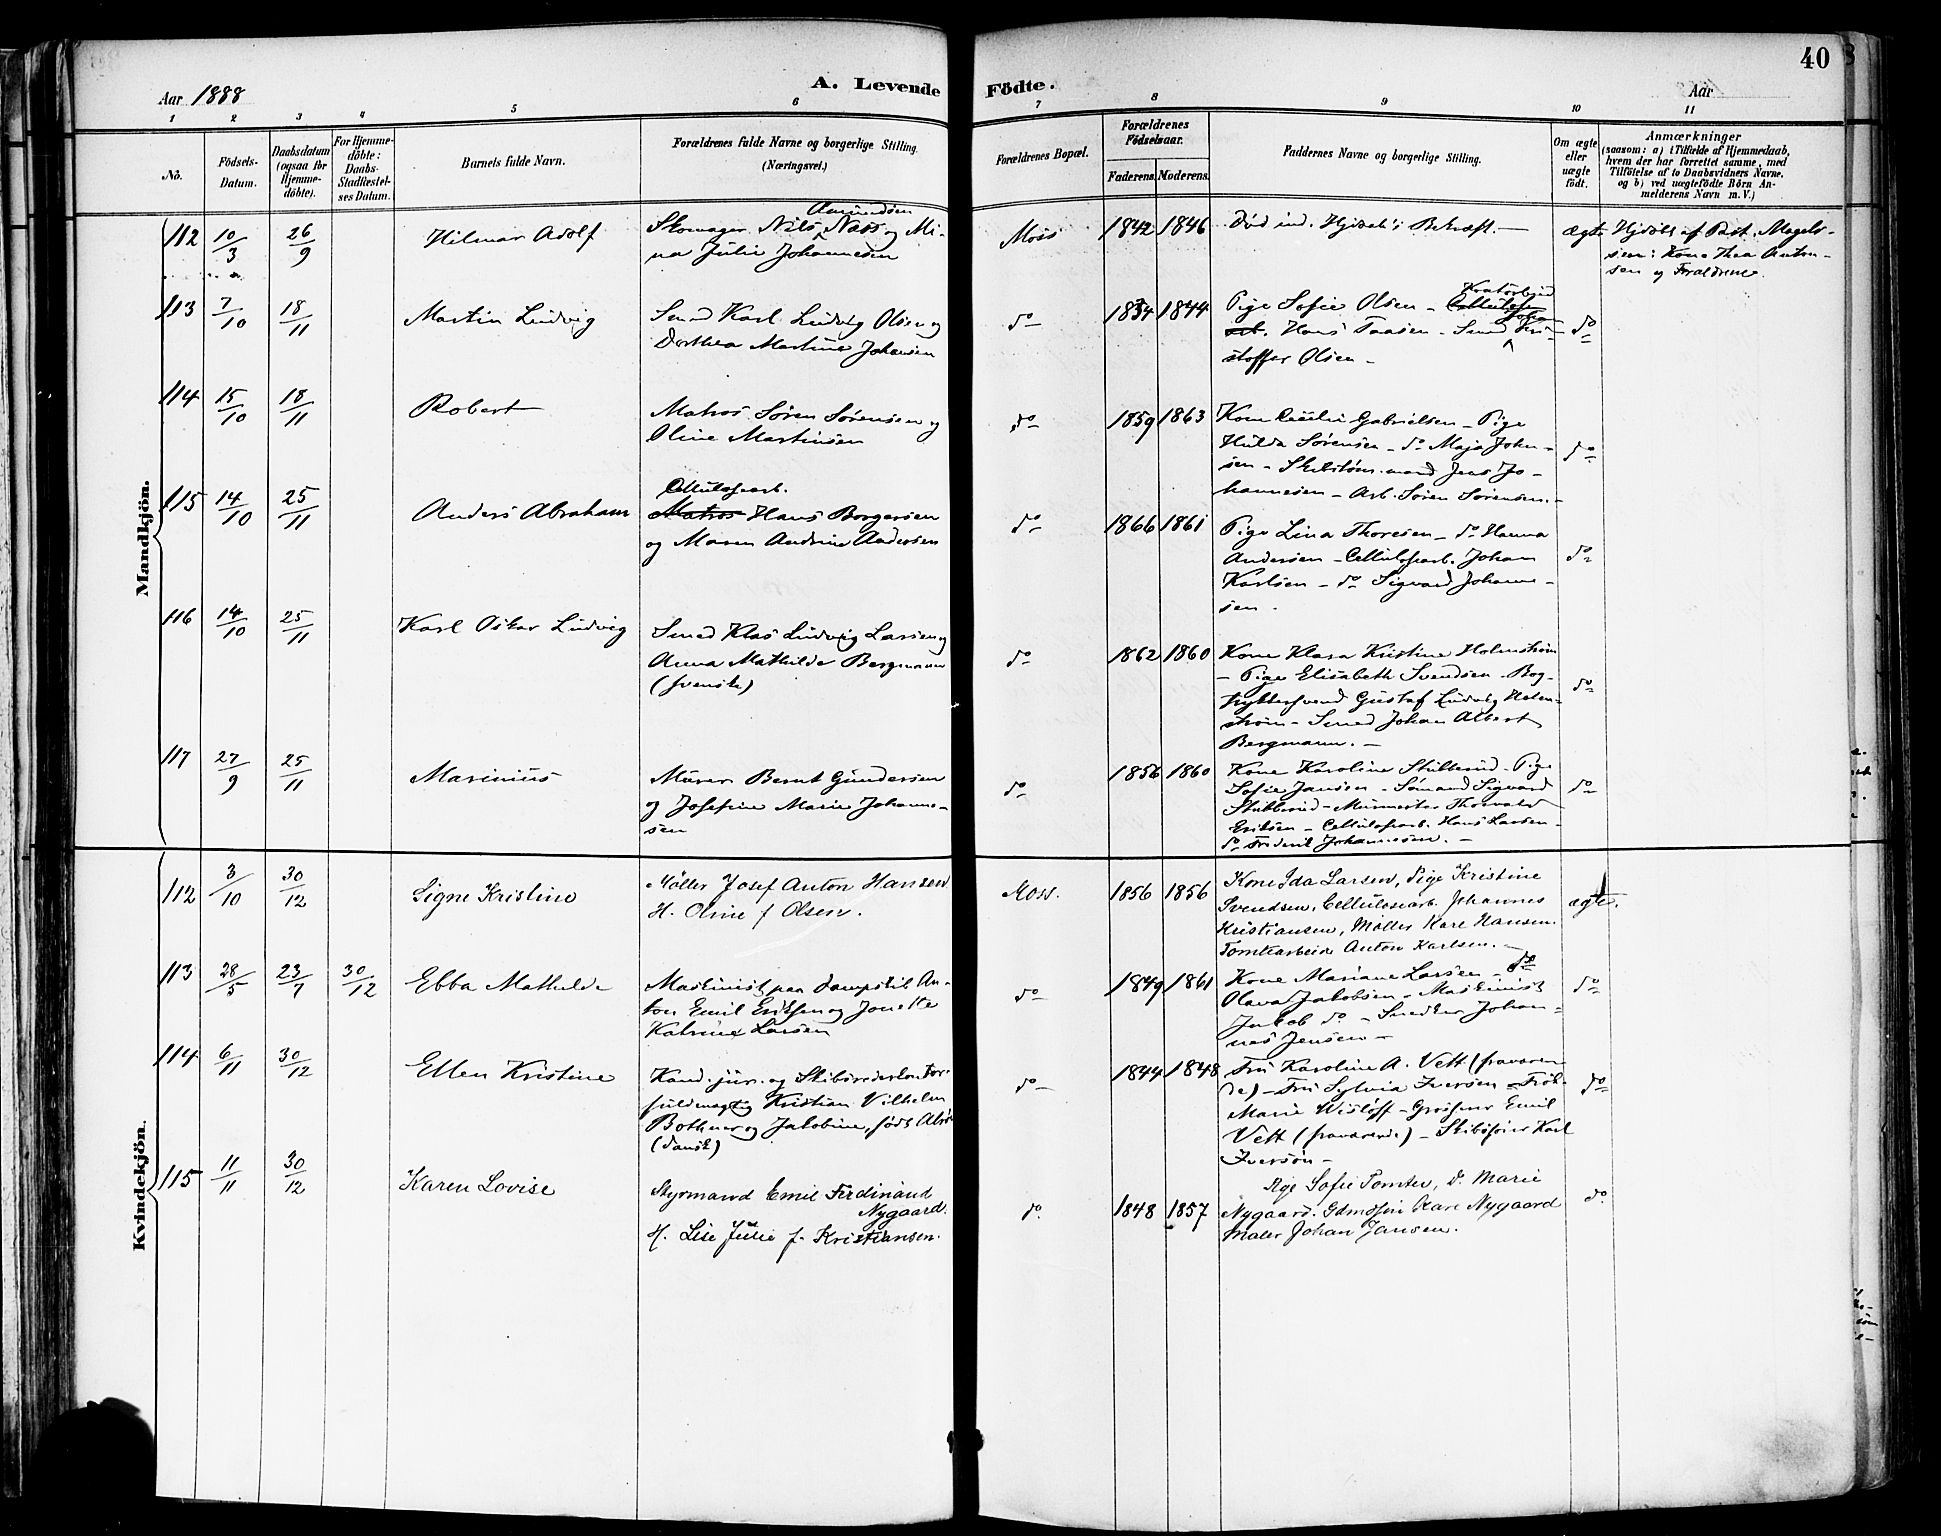 40
Aar 1888
A. Levende
Födte.
Aar
1 2 3 4 5 6 7 8 9 10 11
No.
Födsels-
Datum.
Daabsdatum
(ogsaa för
Hjemme-
döbte).
For Hjemme-
döbte:
Daabs-
Stadfæstel-
ses Datum.
Barnets fulde Navn.
Forældrenes fulde Navne og borgerlige Stilling.
(Næringsvei.)
Forældrenes Bopæl.
Forældrenes
Födselsaar.
Faderens. Moderens.
Faddernes Navne og borgerlige Stilling.
Om ægte
eller
uægte
födt.
Anmærkninger
(saasom: a) i Tilfælde af Hjemmedaab,
hvem der har forrettet samme, med
Tilföielse af to Daabsvidners Navne,
og b) ved uægtefödte Börn An-
melderens Navn m. V.)
Mandkjön.
112 10/3 26/9 Hilmar Adolf
Amundsen
Skomager Nils Næss og Mi-
na Julie Johannesen
Moss 1842 1846
Död ind. Hjdaab: Bekræft. —
ægte
Hjdöbt af Past. Magels-
sen: Kone Thea Anton-
sen og Forældrene.
113 7/10 18/11 Martin Ludvig
Smed Karl Ludvig Olsen og
Dorthea Martine Johansen
do 1834 1844
Pige Sofie Olsen - Kontorbud
Hans Taasen - Smed Kri-
stoffer Olsen -
do
114 15/10 18/11 Robert
Matros Sören Sörensen og
Oline Martinsen
do 1859 1863
Kone Cecilie Gabrielsen - Pige
Hulda Sörensen - do Maja John-
sen - Skibstöm.mand Jens Jo-
hannesen - Arb. Sören Sörensen. -
do
115 14/10 25/11 Anders Abraham
Cellulosearb.
Matros Hans Borgersen
og Maren Andrine Andersen
do 1866 1861
Pige Lina Thoresen - do Hanna
Andersen - Cellulosearb. Johan
Karlsen - do Sigvard Johanne-
sen.
do
116 14/10 25/11 Karl Oskar Ludvig
Smed Klas Ludvig Larsen og
Anna Mathilde Bergmann
(svensk)
do 1862 1860
Kone Klara Kristine Holmström
- Pige Elisabeth Svendsen - Bog-
trykkersvend Gustaf Ludvig Holm-
ström - Smed Johan Albert
Bergmann. -
do
117 27/9 25/11 Marinius
Murer Bernt Gundersen
og Josefine Marie Johanne-
sen
do 1856 1860
Kone Karoline Stubberud - Pige
Sofie Jansen - Sömand Sigvard
Stubberud - Murmester Thorvald
Eriksen - Cellulosearb. Hans Larsen -
do Frederik Johannesen. -
do
Kvindekjön.
112 3/10 30/12 Signe Kristine
Möller Josef Anton Hansen
H. Oline f Olsen.
Moss. 1856 1856
Kone Ida Larsen, Pige Kristine
Svendsen, Cellulosearb. Johannes
Kristiansen, Möller Kare Hansen.
Tomtearbeider Anton Karlsen. -
ægte.
113 28/5 23/7 30/12 Ebba Mathilde
Maskinist paa Dampskib An-
ton Emil Eriksen og Jonette
Katrine Larsen
do 1849 1861
Kone Mariane Larsen - do
Olava Jakobsen - Maskinist
Jakob do - Snedker Johan-
nes Jensen -
do
114 6/11 30/12 Ellen Kristine
Kand. jur. og Skibsrederkontor-
fuldmægtig Kristian Vilhelm
Bothner og Jakobine, födt
(dansk)
do 1844 1848
Fru Karoline A. Vett (fraværen-
de) - Fru Sylvia Iversön - Frök.
Marie Wislöff - Grosserer Emil
Vett (fraværende) - Skibsförer Karl
Iversön -
do
115 11/11 30/12 Karen Lovise
Styrmand Emil Ferdinand
Nygaard.
H. Lise Julie f. Kristiansen.
do. 1848 1857
Pige Sofie Tomter, do. Marie
Nygaard. Kare Nygaard
Maler Johan Jansen.
do